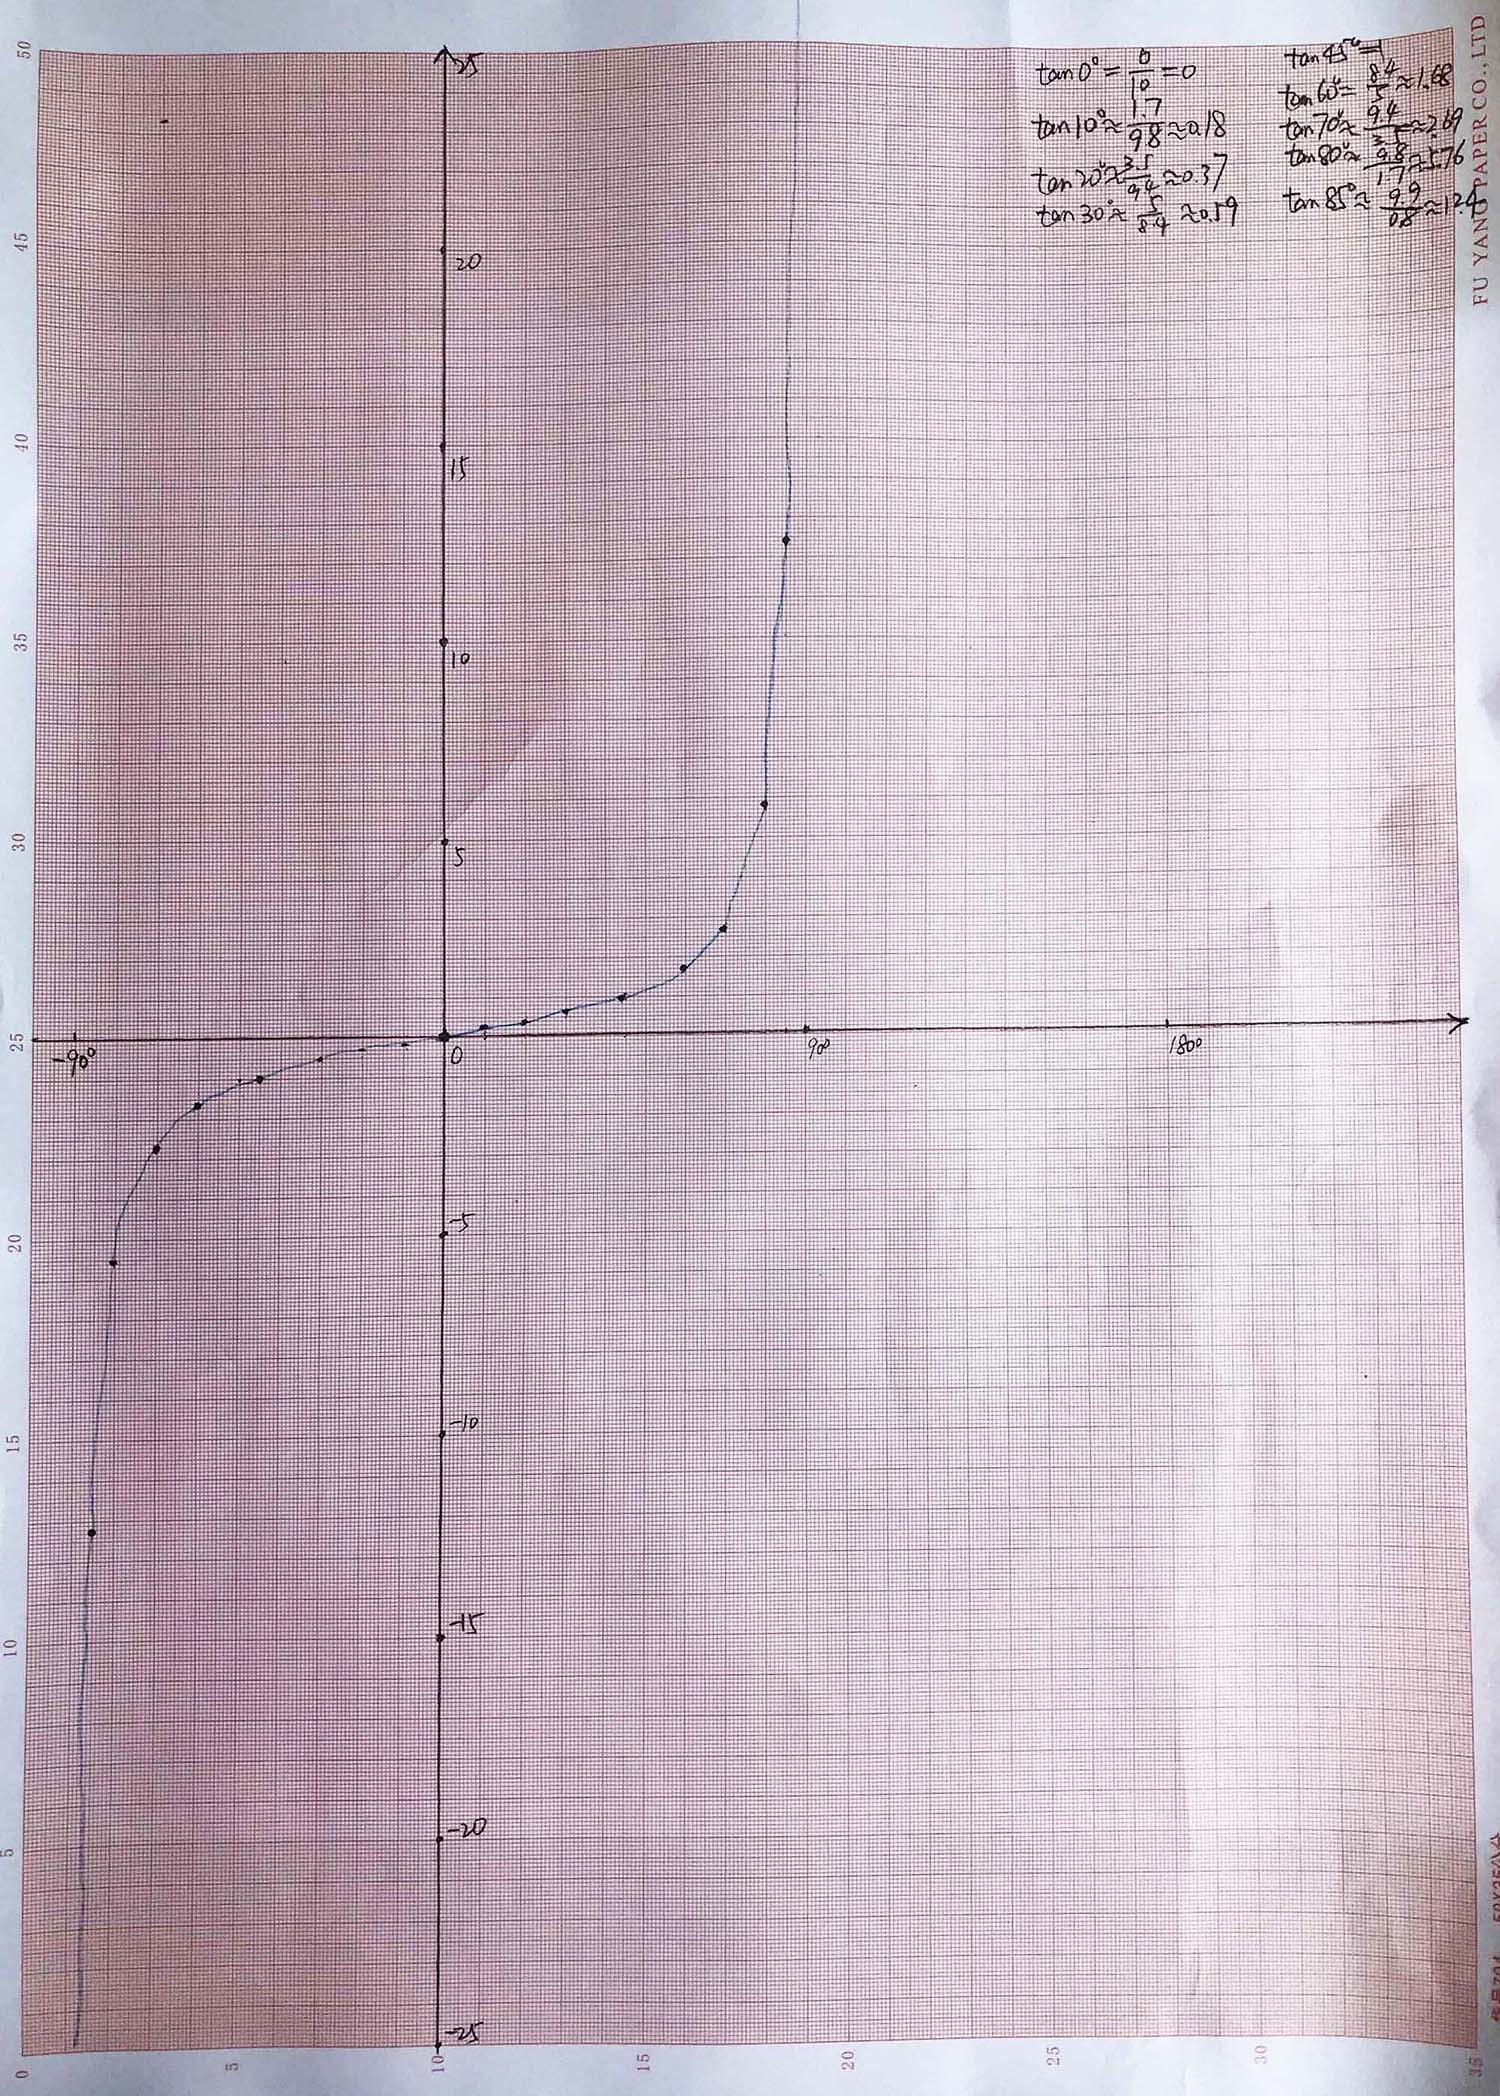 50
25
tan 0° = 0/10 = 0
tan 10° ≈ 1.7/9.8 ≈ 0.18
tan 20° ≈ 3.5/9.4 ≈ 0.37
tan 30° ≈ 5/8.4 ≈ 0.59
tan 45° = 1
tan 60° ≈ 8.4/5 ≈ 1.68
tan 70° ≈ 9.4/3.5 ≈ 2.69
tan 80° ≈ 9.8/1.7 ≈ 5.76
tan 85° ≈ 9.9/0.8 ≈ 12.4
FU YANG PAPER CO., LTD
45
20
40
15
35
10
30
5
25
-90°
0
90°
180°
20
-5
15
-10
10
-15
5
-20
-25
0
5
10
15
20
25
30
35